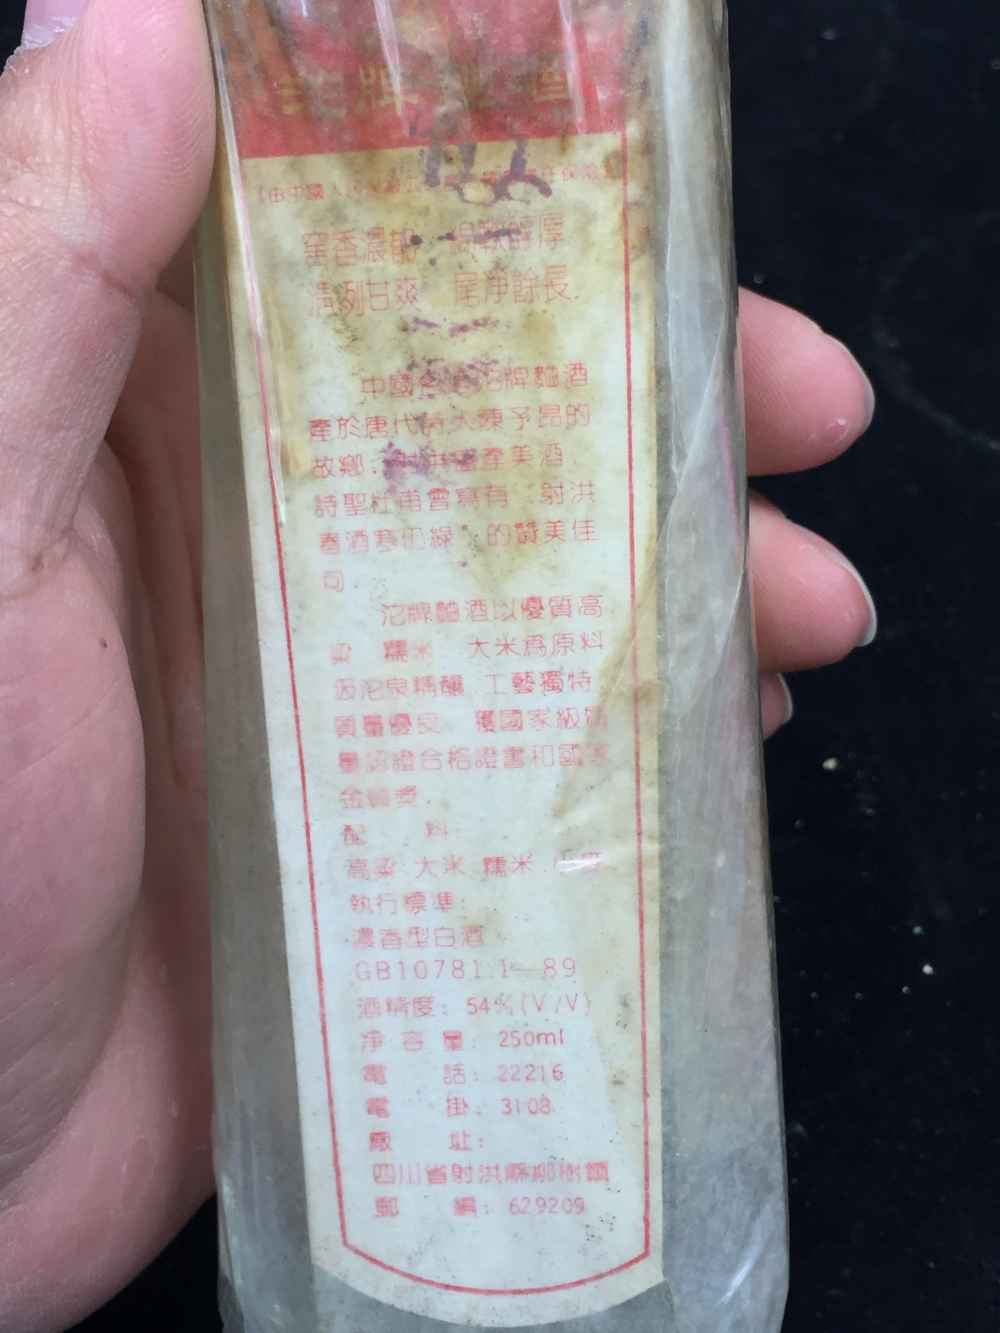 窖香濃郁 醇厚
清冽甘爽 尾净餘長
中國 沱牌麯酒
產於唐代詩人陳子昂的
故鄉 美酒
詩聖杜甫曾寫有 射洪
春酒寒仍綠 的贊美佳
句
沱牌麯酒以優質高
粱 糯米 大米爲原料
沱泉精釀 工藝獨特
質量優良 獲國家級質
量認證合格證書和國家
金質奬
配 料:
高粱 大米 糯米 小麥
執行標準:
濃香型白酒
GB10781.1—89
酒精度: 54%(V/V)
净容量: 250ml
電 話: 22216
電 掛: 3108
廠 址:
四川省射洪縣柳樹鎮
郵 編: 629209